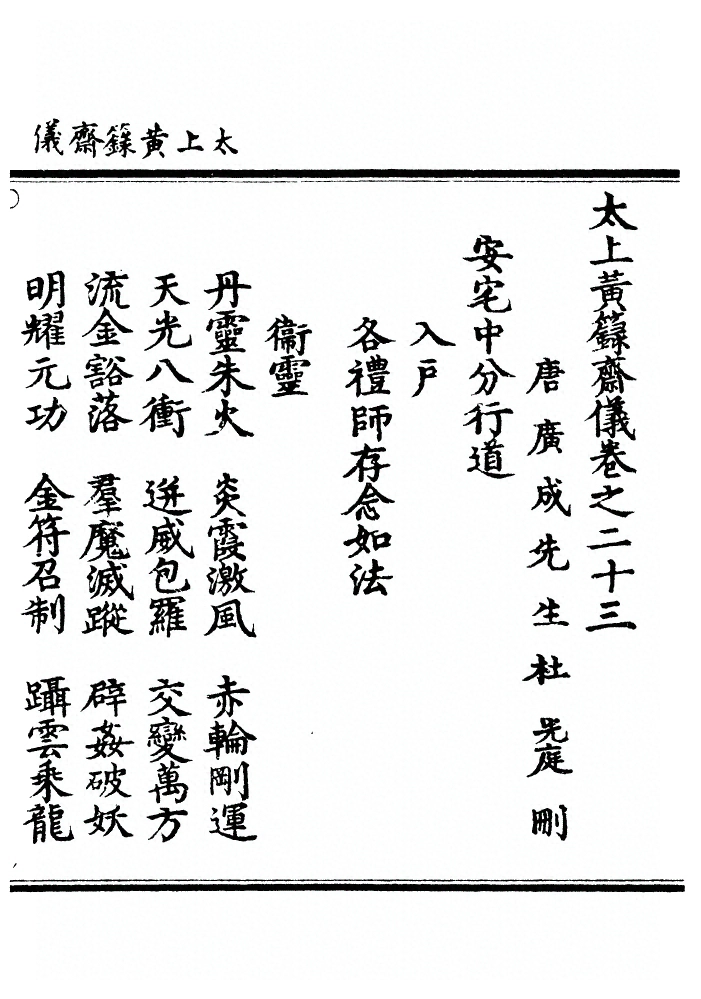 太上黃籙齋儀
太上黃籙齋儀卷之二十三
唐廣成先生杜光庭刪
安宅中分行道
入戶
各禮師存念如法
衞靈
丹靈朱火　炎霞激風　赤輪剛運
天光八衝　迸威包羅　交變萬方
流金豁落　羣魔滅蹤　辟姦破妖
明耀元功　金符召制　躡雲乘龍